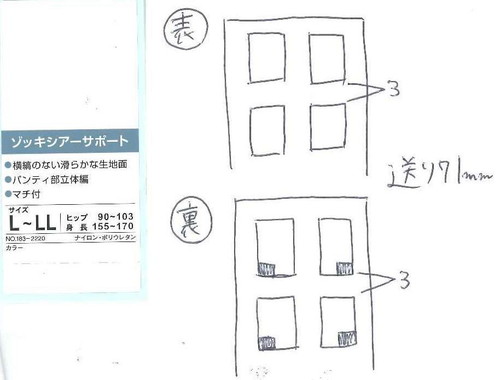 ゾッキシアーサポート
●横縞のない滑らかな生地面
●パンティ部立体編
●マチ付
サイズ
L~LL
ヒップ 90~103
身長 155~170
NO.183-2220 ナイロン・ポリウレタン
カラー
表
3
送り71mm
裏
3